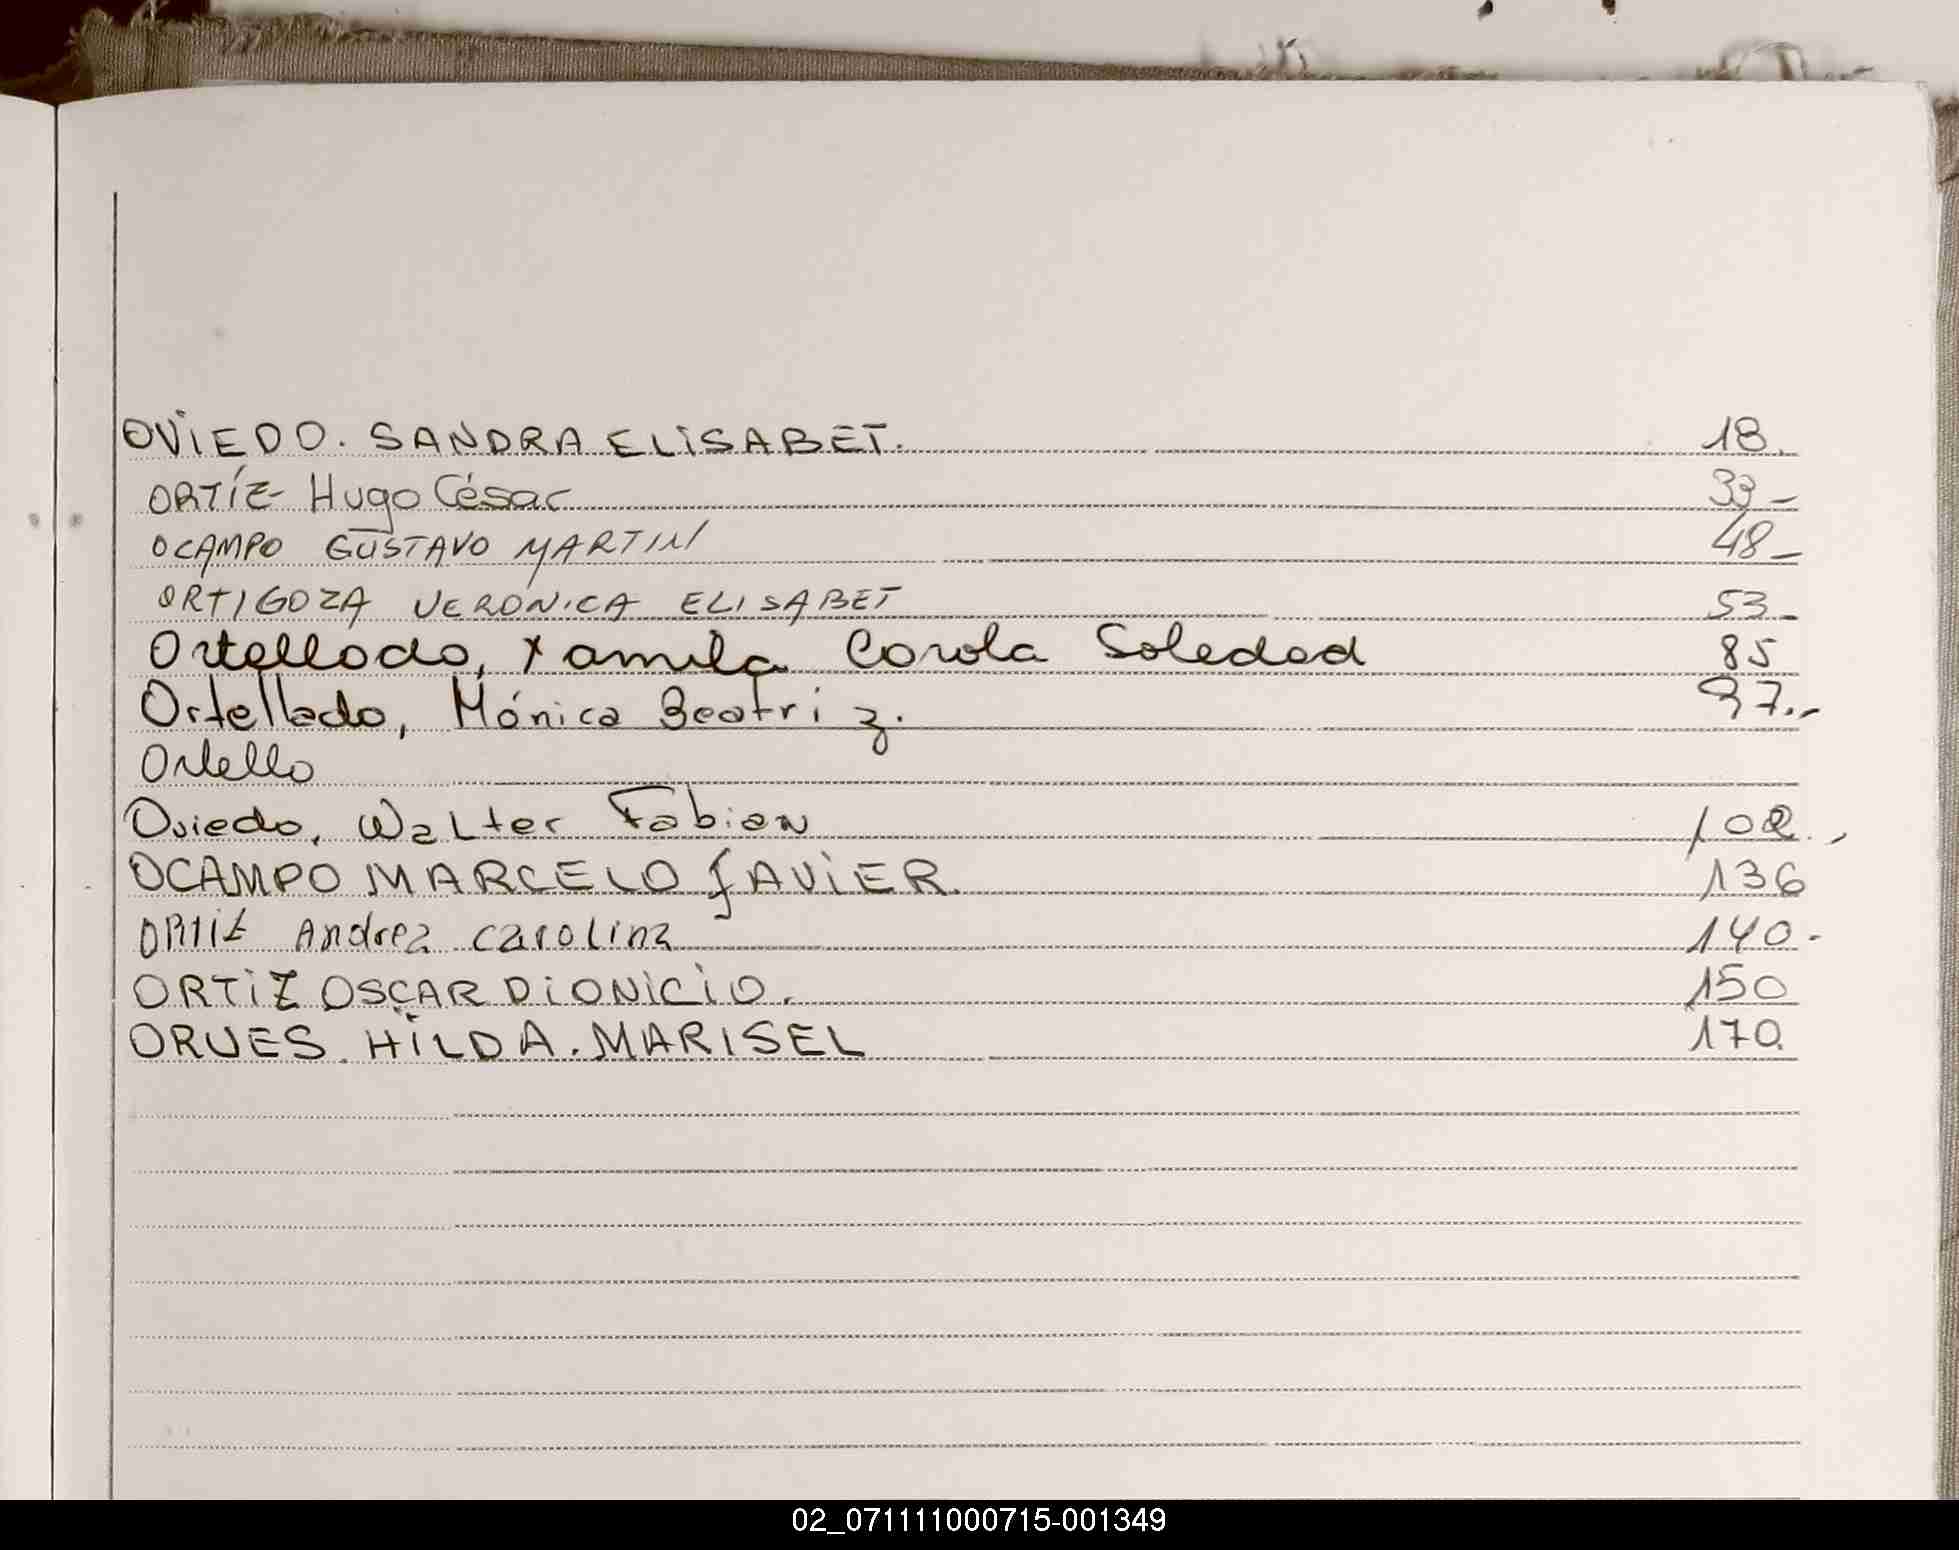 OVIEDO. SANDRA ELISABET. 18.
ORTÍZ- Hugo César 33-
OCAMPO GUSTAVO MARTIN 48-
ORTIGOZA VERONICA ELISABET 53-
Ortellado, Yamila Carola Soledad 85
Ortellado, Mónica Beatriz. 97.-
Ortello
Oviedo, Walter Fabian 102.,
OCAMPO MARCELO JAVIER. 136
ORTIZ Andrea Carolina 140-
ORTIZ OSCAR DIONICIO. 150
ORUES. HILDA. MARISEL 170.
02_071111000715-001349